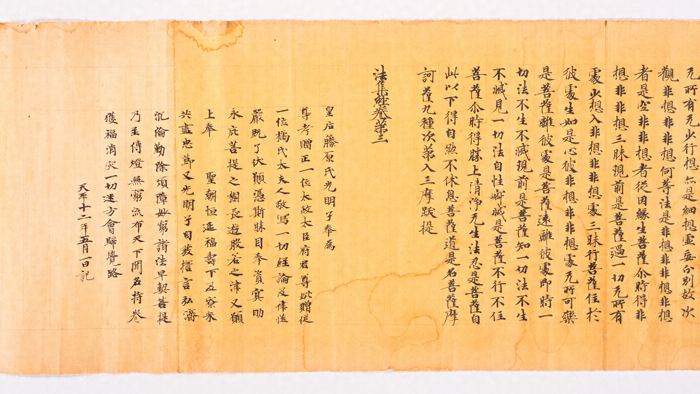 无所有无此行想亦是細想虛妄分別故次
觀非想非非想何等法是非想非非想想
者是空非非想者從因緣生菩薩尒時得非
想非非想三昧現前是菩薩過一切无所有
處少想入非想非非想處三昧行菩薩住於
彼處生如是心彼非想非非想處无所可樂
是菩薩離彼處是菩薩遠離彼處即時一
切法不生不滅現前是菩薩知一切法不生
不滅見一切法自性寂滅是菩薩不行不住
菩薩尒時得勝上清淨无生法忍是菩薩自
此以下得自致不休息菩薩道是名菩薩摩
訶薩九種次第入三摩跋提
法集經卷第三
皇后藤原氏光明子奉為
尊考贈正一位太政太臣府君尊妣贈從
一位橘氏太夫人敬寫一切經論及律莊
嚴既了伏願憑斯勝因奉資冥助
永庇菩提之樹長遊般若之津又願
上奉 聖朝恒延福壽下及寮采
共盡忠節又光明子自發誓言弘濟
沉淪勤除煩障妙窮諸法早契菩提
乃至傳燈無窮流布天下聞名持卷
獲福消災一切迷方會歸覺路
天平十二年五月一日記